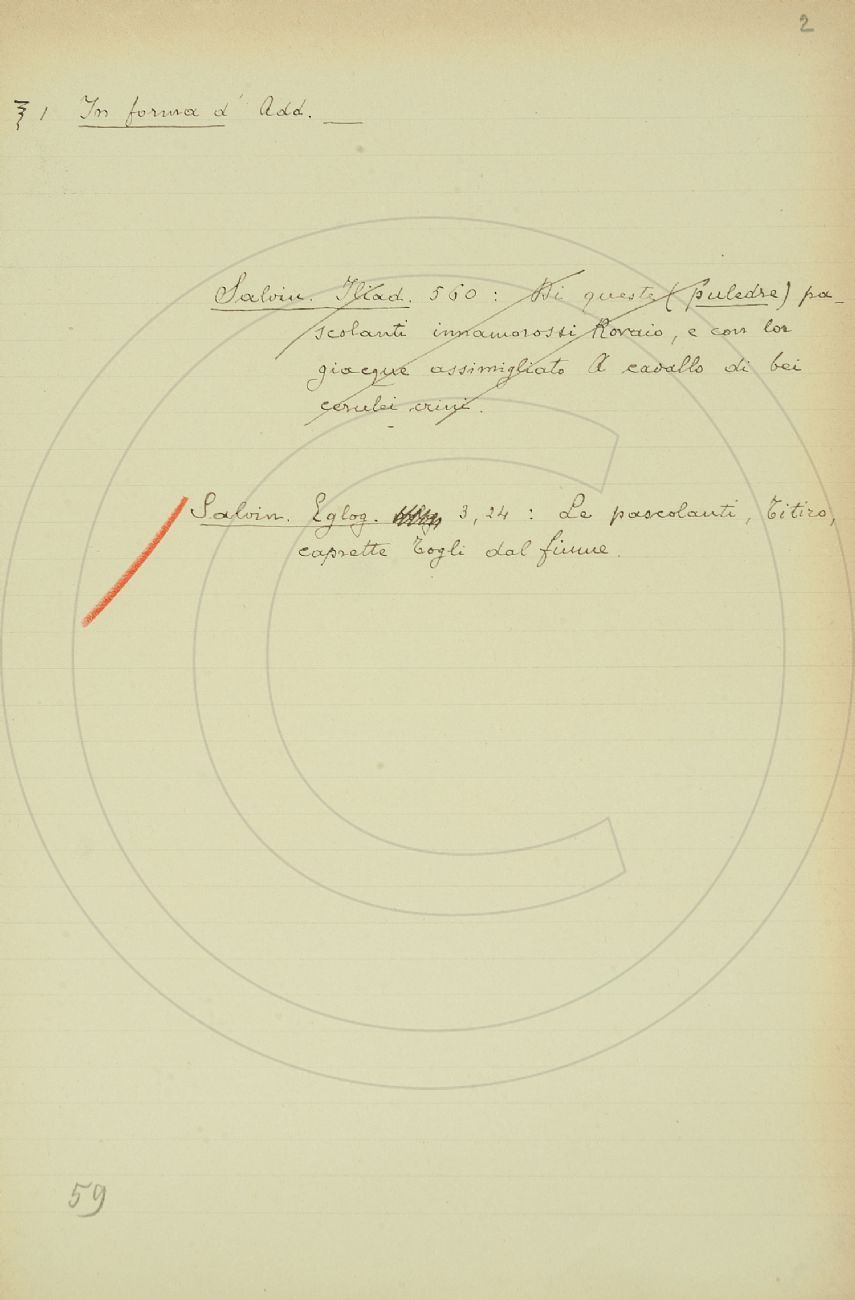 2
§ 1 In forma d' Add. —
Salvin. Iliad. 560 : Di queste (puledre) pa-
scolanti innamorossi Rovaio, e con lor
giacque assimigliato A cavallo di bei
cerulei crini.
Salvin. Eglog. 3, 24 : Le pascolanti, Titiro,
caprette Togli dal fiume.
59